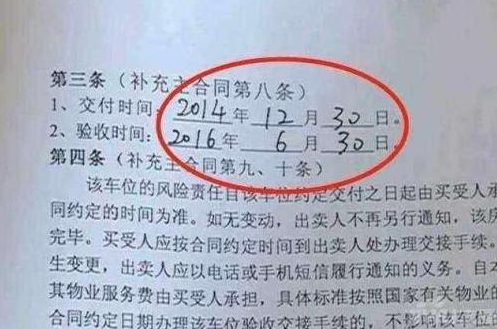 第三条（补充主合同第八条）
1、交付时间：2014年 12 月 30 日。
2、验收时间：2016年 6 月 30 日。
第四条（补充主合同第九、十条）
该车位的风险责任自该车位约定交付之日起由买受人承
同约定的时间为准。如无变动，出卖人不再另行通知，该
完毕。买受人应按合同约定时间到出卖人处办理交接手续。
生变更，出卖人应以电话或手机短信履行通知的义务。自本
其物业服务费由买受人承担，具体标准按照国家有关物业的
合同约定日期办理该车位验收交接手续的，不影响该车位